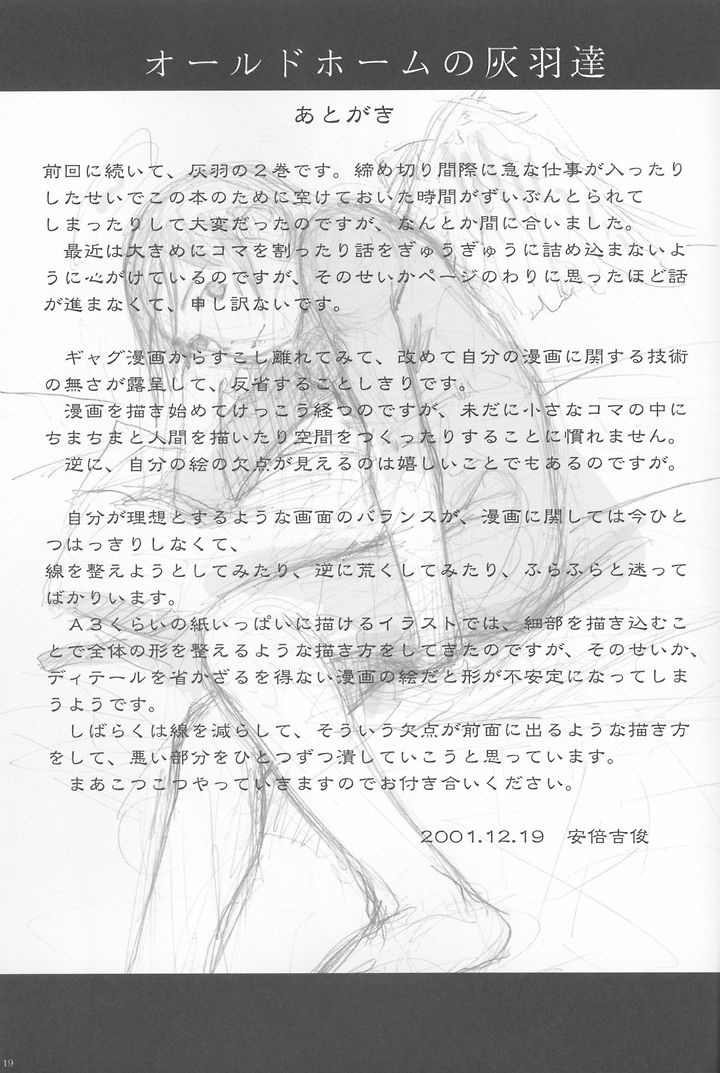 オールドホームの灰羽達
あとがき
前回に続いて、灰羽の2巻です。締め切り間際に急な仕事が入ったり
したせいでこの本のために空けておいた時間がずいぶんとられて
しまったりして大変だったのですが、なんとか間に合いました。
最近は大きめにコマを割ったり話をぎゅうぎゅうに詰め込まないよ
うに心がけているのですが、そのせいかページのわりに思ったほど話
が進まなくて、申し訳ないです。
ギャグ漫画からすこし離れてみて、改めて自分の漫画に関する技術
の無さが露呈して、反省することしきりです。
漫画を描き始めてけっこう経つのですが、未だに小さなコマの中に
ちまちまと人間を描いたり空間をつくったりすることに慣れません。
逆に、自分の絵の欠点が見えるのは嬉しいことでもあるのですが。
自分が理想とするような画面のバランスが、漫画に関しては今ひと
つはっきりしなくて、
線を整えようとしてみたり、逆に荒くしてみたり、ふらふらと迷って
ばかりいます。
A3くらいの紙いっぱいに描けるイラストでは、細部を描き込むこ
とで全体の形を整えるような描き方をしてきたのですが、そのせいか、
ディテールを省かざるを得ない漫画の絵だと形が不安定になってしま
うようです。
しばらくは線を減らして、そういう欠点が前面に出るような描き方
をして、悪い部分をひとつずつ潰していこうと思っています。
まあこつこつやっていきますのでお付き合いください。
2001.12.19 安倍吉俊
19